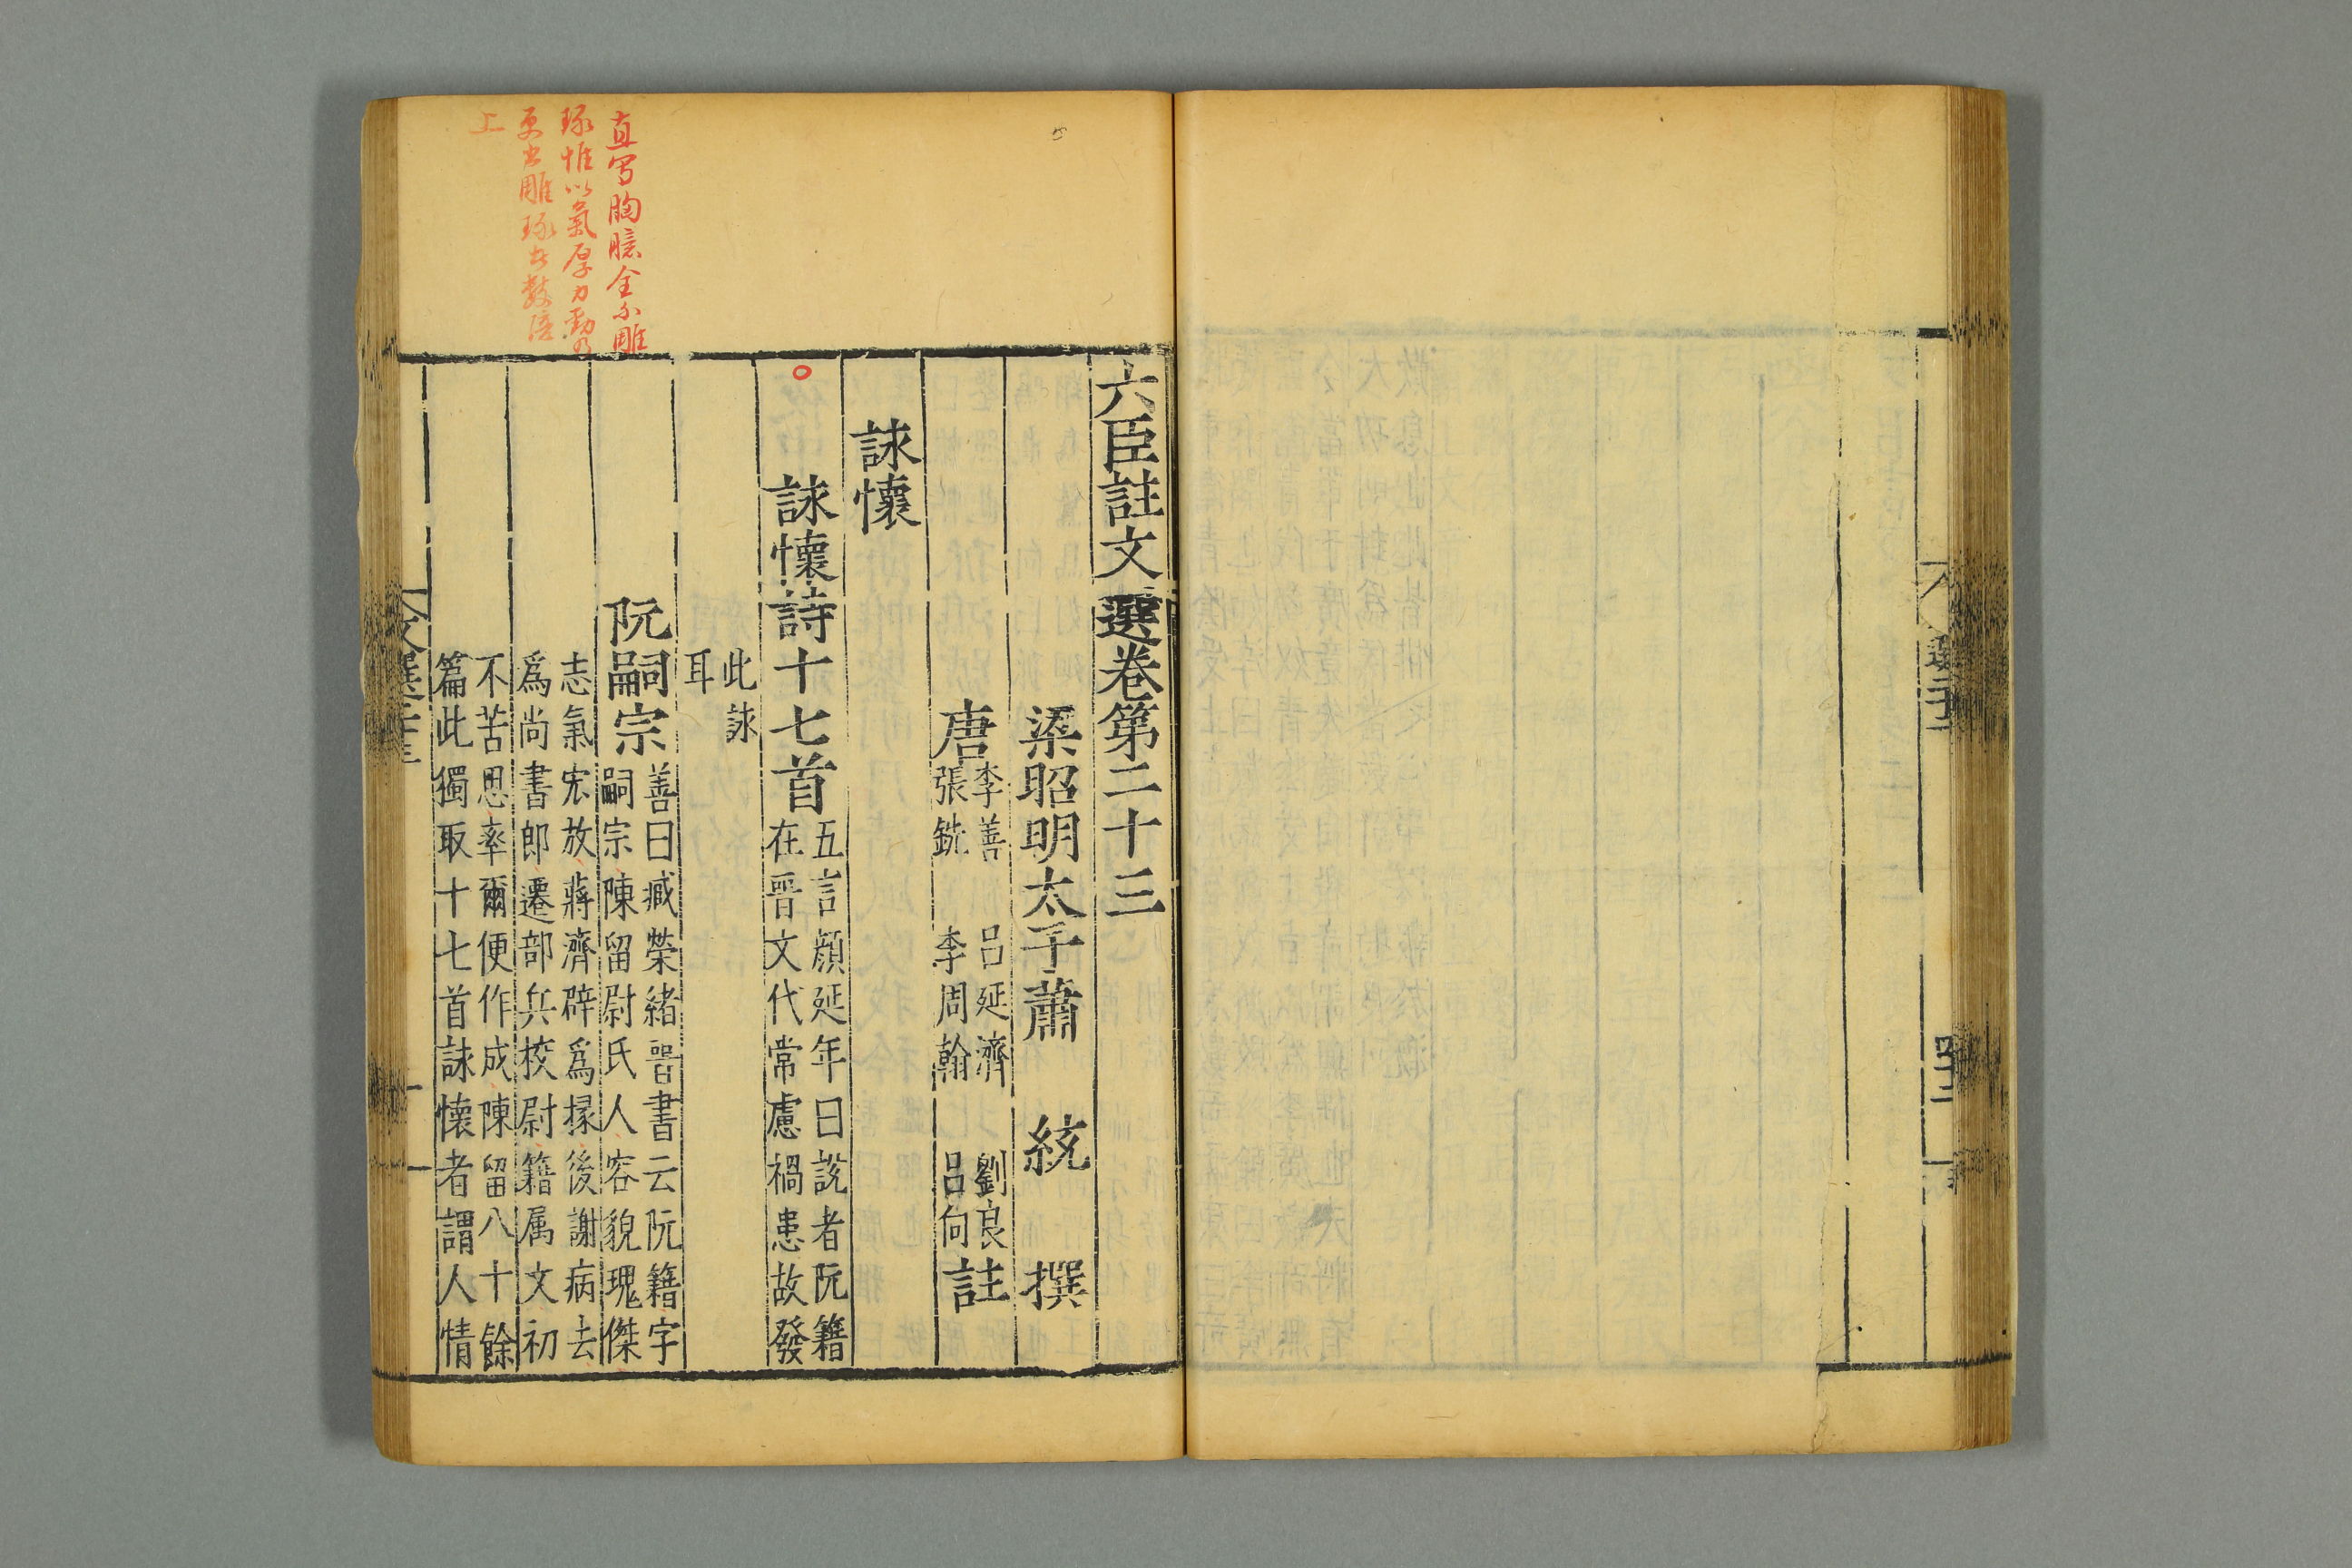 六臣註文選卷第二十三
梁昭明太子蕭 統 撰
唐 李善 呂延濟 劉良
張銑 李周翰 呂向 註
詠懷
詠懷詩十七首 五言顏延年曰說者阮籍
在晉文代常慮禍患故發
此詠
耳
阮嗣宗 善曰臧榮緒晉書云阮籍字
嗣宗陳留尉氏人容貌瑰傑
志氣宏放蔣濟辟爲掾後謝病去
爲尚書郎遷部兵校尉籍属文初
不苦思率爾便作成陳留八十餘
篇此獨取十七首詠懷者謂人情
直写胸臆全不雕
琢惟以氣厚力勁乃
更出雕琢者數倍
上